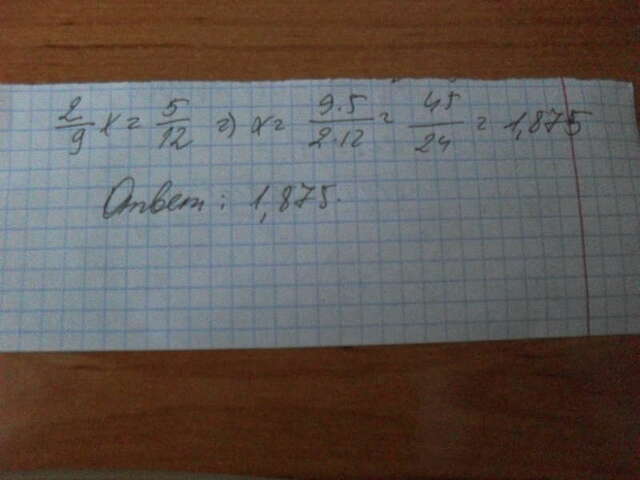 2/9 x = 5/12 => x = 9·5/2·12 = 45/24 = 1,875
Ответ: 1,875.